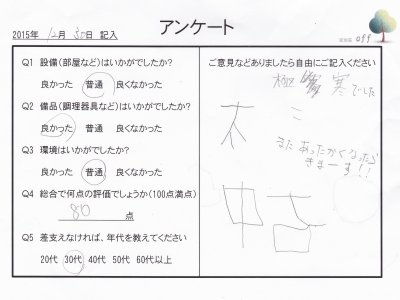 アンケート
2015年 12月 30日 記入
off
Q1 設備(部屋など)はいかがでしたか?
良かった 普通 良くなかった
Q2 備品(調理器具など)はいかがでしたか?
良かった 普通 良くなかった
Q3 環境はいかがでしたか?
良かった 普通 良くなかった
Q4 総合で何点の評価でしょうか(100点満点)
80 点
Q5 差支えなければ、年代を教えてください
20代 30代 40代 50代 60代以上
ご意見などありましたら自由にご記入ください
極 寒でした
またあったかくなったら
きまーす!!